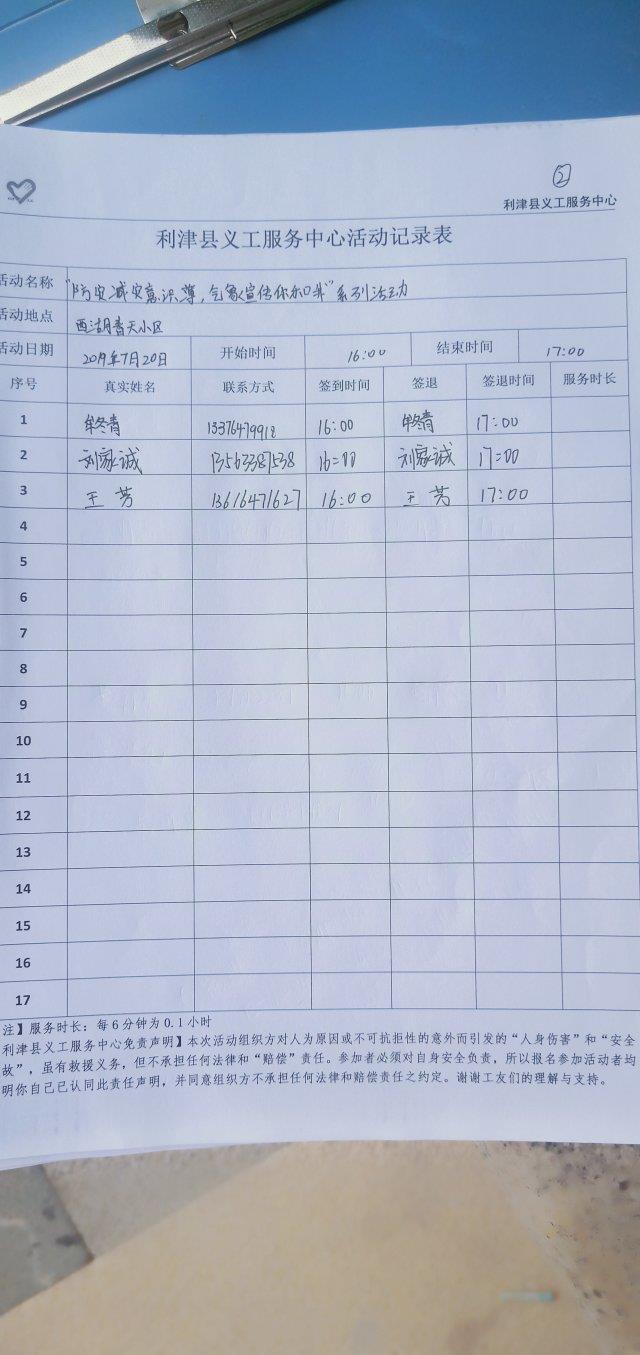 ②
利津县义工服务中心
利津县义工服务中心活动记录表
活动名称 "防灾减灾意识薄,气象宣传你和我"系列活动
活动地点 西湖春天小区
活动日期 2019年7月20日 开始时间 16:00 结束时间 17:00
序号 真实姓名 联系方式 签到时间 签退 签退时间 服务时长
1 牟冬青 13376479918 16:00 牟冬青 17:00
2 刘家诚 13563387538 16:00 刘家诚 17:00
3 王芳 13616471627 16:00 王芳 17:00
4
5
6
7
8
9
10
11
12
13
14
15
16
17
注】服务时长:每6分钟为0.1小时
利津县义工服务中心免责声明】本次活动组织方对人为原因或不可抗拒性的意外而引发的“人身伤害”和“安全
故”,虽有救援义务,但不承担任何法律和“赔偿”责任。参加者必须对自身安全负责,所以报名参加活动者均
明你自己已认同此责任声明,并同意组织方不承担任何法律和赔偿责任之约定。谢谢工友们的理解与支持。